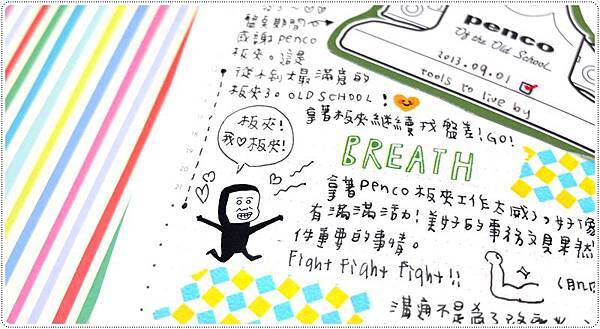 期間
感謝penco
板夾。這是
最滿意的
板夾了。OLD SCHOOL！
penco
Of the Old School
2013.09.01
tools to live by
拿著板夾繼續找盤差！GO!
板夾！
我♡板夾！
BREATH
拿著penco板夾工作太威了，好像
有滿滿活力！美好的事務又果然
件重要的事情。
Fight Fight Fight!!
不是為了